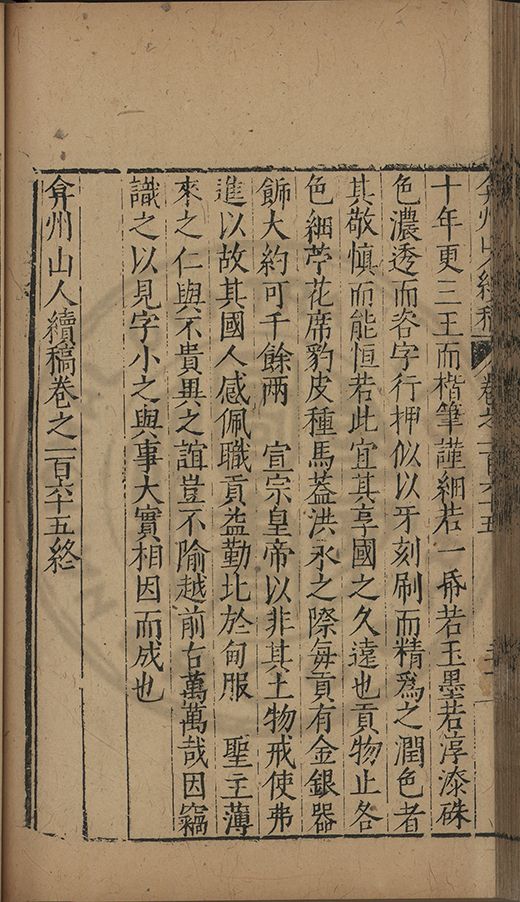 弇州山人續稿 卷之一百六十五
十年更三王而楷筆謹細若一帋若玉墨若淳漆硃
色濃透而咨字行押似以牙刻刷而精爲之潤色者
其敬慎而能恒若此宜其享國之久遠也貢物止各
色細苧花席豹皮種馬葢洪永之際每貢有金銀器
飾大約可千餘兩　宣宗皇帝以非其土物戒使弗
進以故其國人感佩職貢益勤比於甸服　聖主薄
來之仁與不貴異之誼豈不隃越前古萬萬哉因竊
識之以見字小之與事大實相因而成也
弇州山人續稿卷之一百六十五終